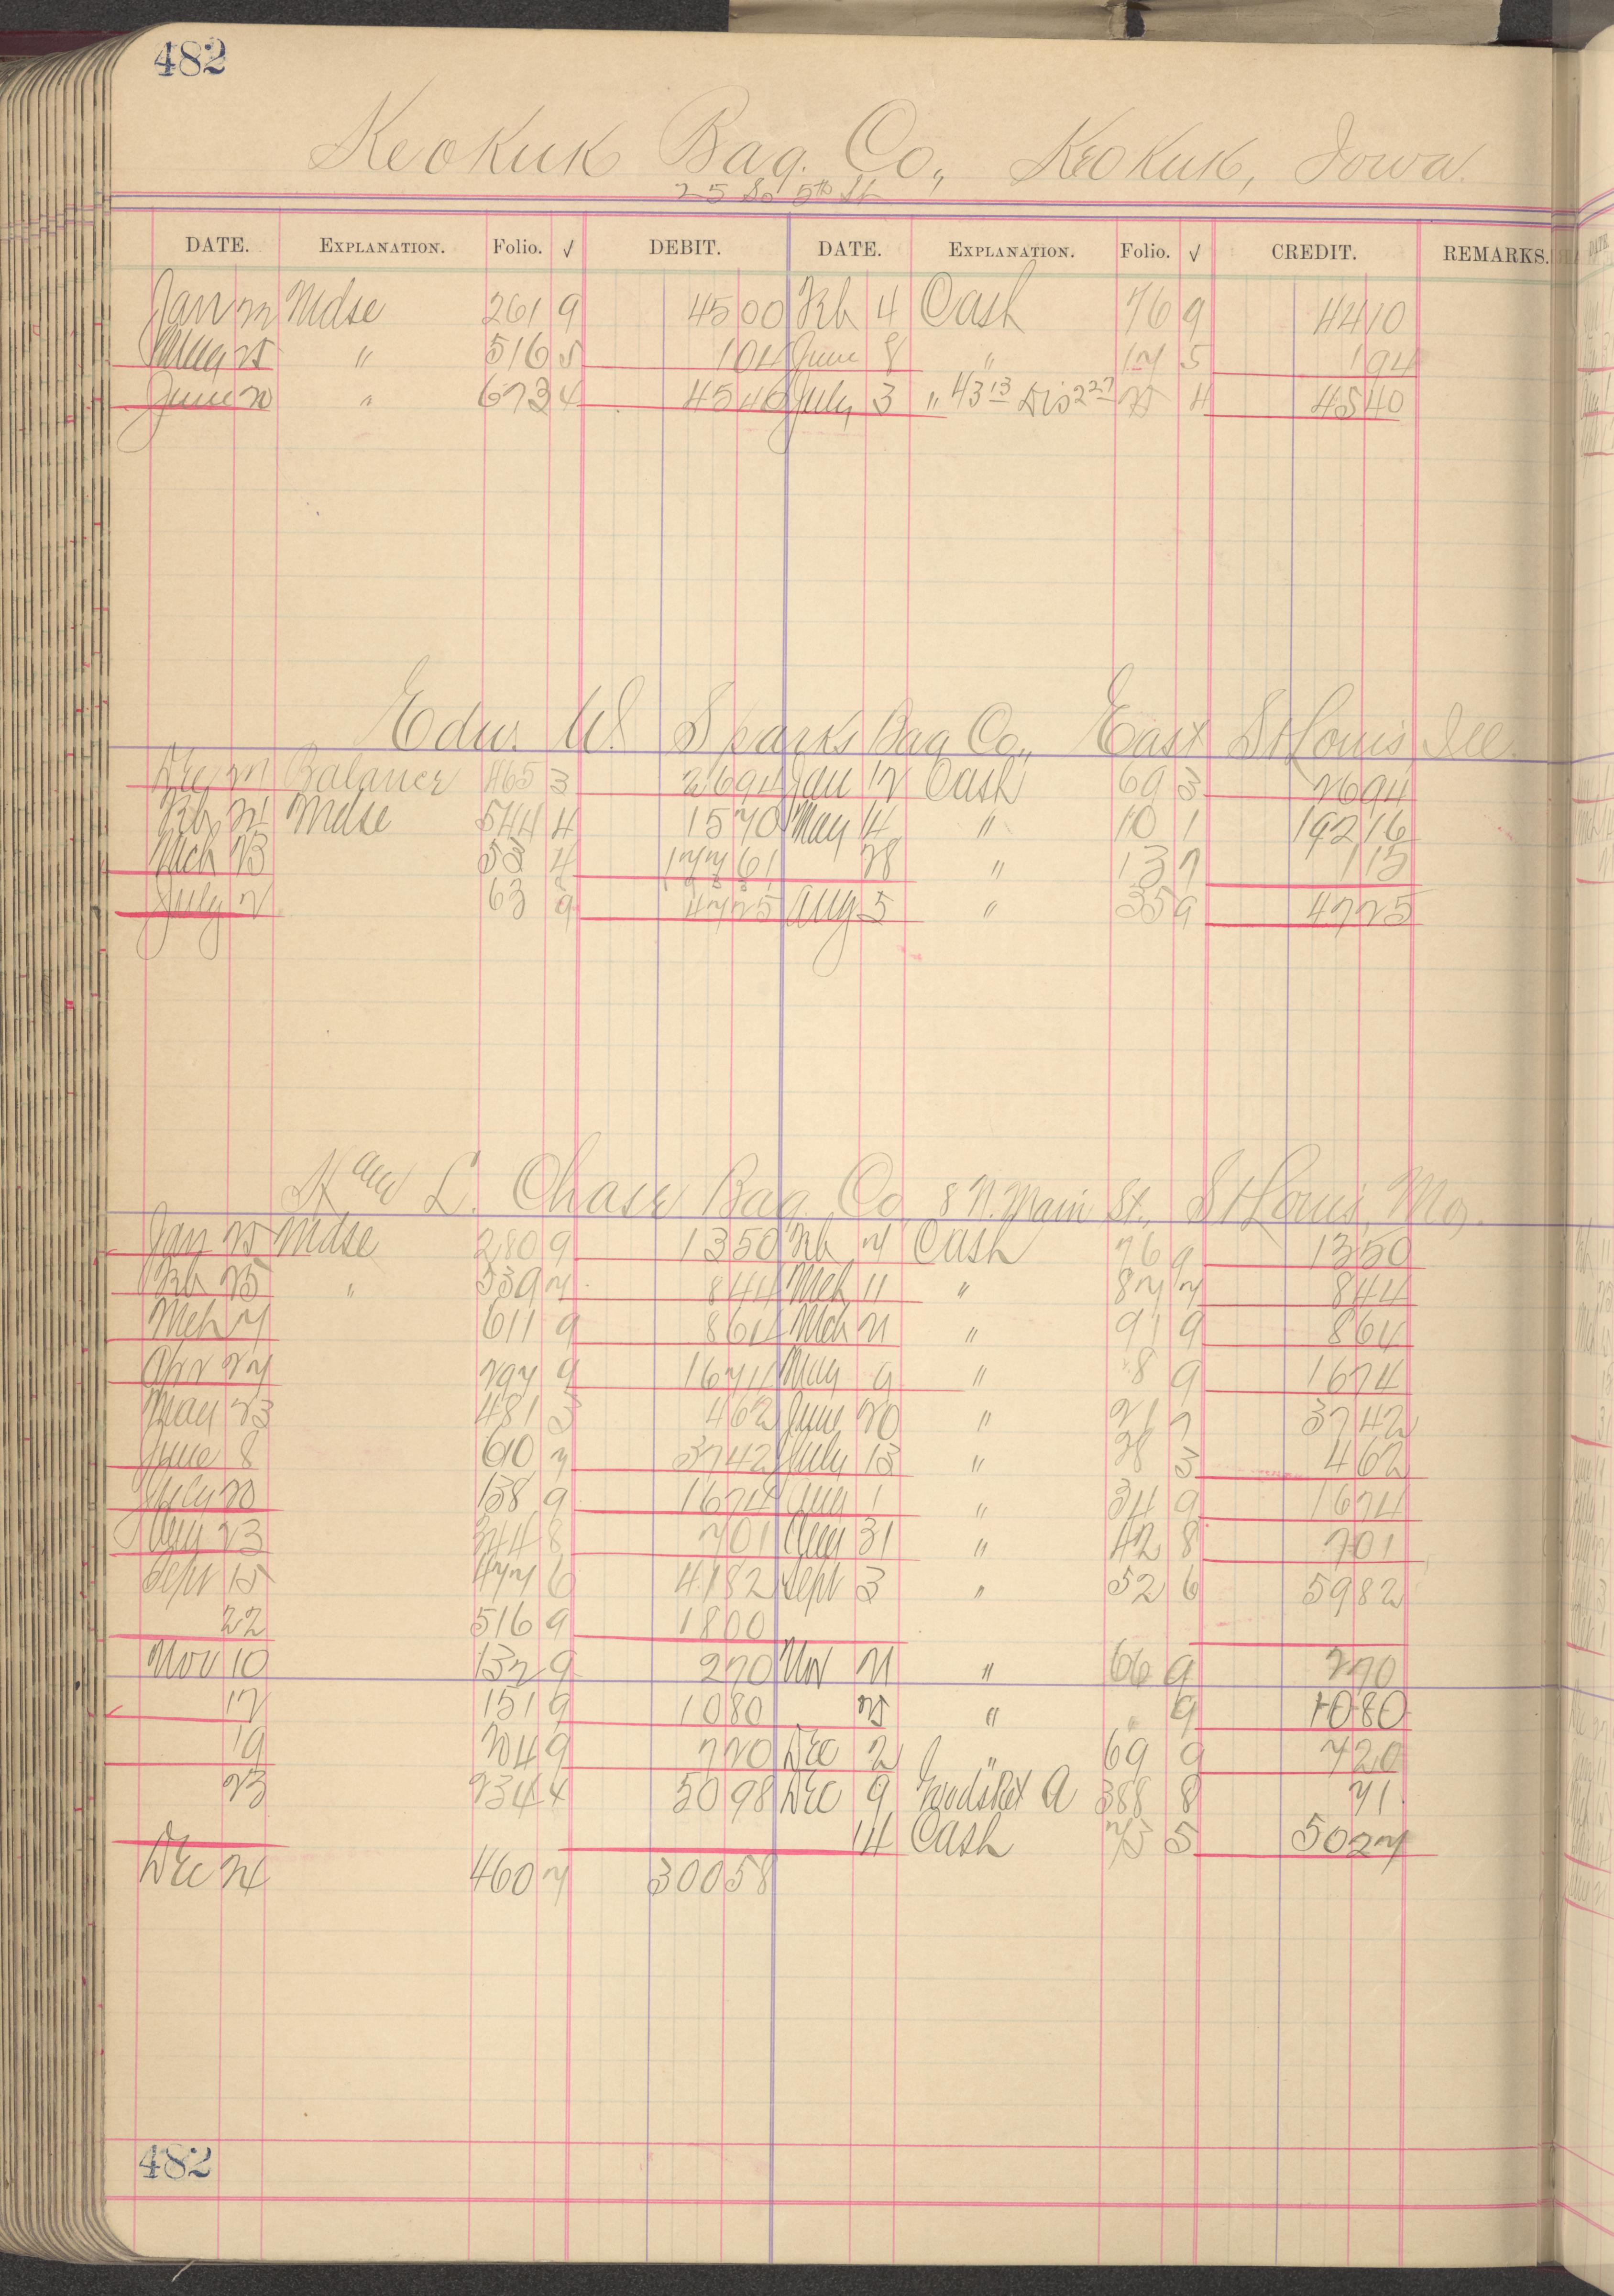 482
Keokuk Bag. Co., Keokuk, Iowa.
25 So 5th St
DATE. EXPLANATION. Folio. √ DEBIT. DATE. EXPLANATION. Folio. √ CREDIT. REMARKS.
Jan Mdse 261 9 45 00 Feb 4 Cash 76 9 44 10
25 " 516 5 1 04 June 8 " 5 1 94
June 20 " 673 4 45 40 July 3 " 43 13 Dis 2 27 25 4 45 40
Edw. W. Sparks Bag Co., East St Louis, Ill.
Dec Balance 465 3 26 94 Jan 12 Cash 69 3 26 94
Feb 24 Mdse 544 4 15 70 May 4 " 10 1 192 16
Mch 23 53 4 177 61 28 " 13 7 1 15
July 2 63 9 47 25 Aug 5 " 35 9 47 25
L. Chase Bag. Co. 8 N. Main St., St Louis, Mo.
Jan 25 Mdse 280 9 13 50 Feb 4 Cash 76 9 13 50
Feb 25 " 539 7 8 44 Mch 11 " 87 7 8 44
Mch 7 611 9 8 64 Mch 21 " 91 9 8 64
Apr 27 297 9 16 74 May 9 " 8 9 16 74
May 23 481 3 4 62 June 20 " 21 7 37 42
June 8 610 7 37 42 July 13 " 28 3 4 62
July 20 138 9 16 74 Aug 1 " 34 9 16 74
Aug 23 344 8 7 01 Aug 31 " 42 8 7 01
Sept 15 477 6 41 82 Sept 3 " 52 6 59 82
22 516 9 18 00
Nov 10 132 9 2 70 Nov 21 " 66 9 2 70
17 151 9 10 80 25 " " 9 10 80
19 204 9 7 20 Dec 2 " 69 9 7 20
23 234 4 50 98 Dec 9 A 388 8 71
14 Cash 75 5 50 27
Dec 24 460 7 300 58
482